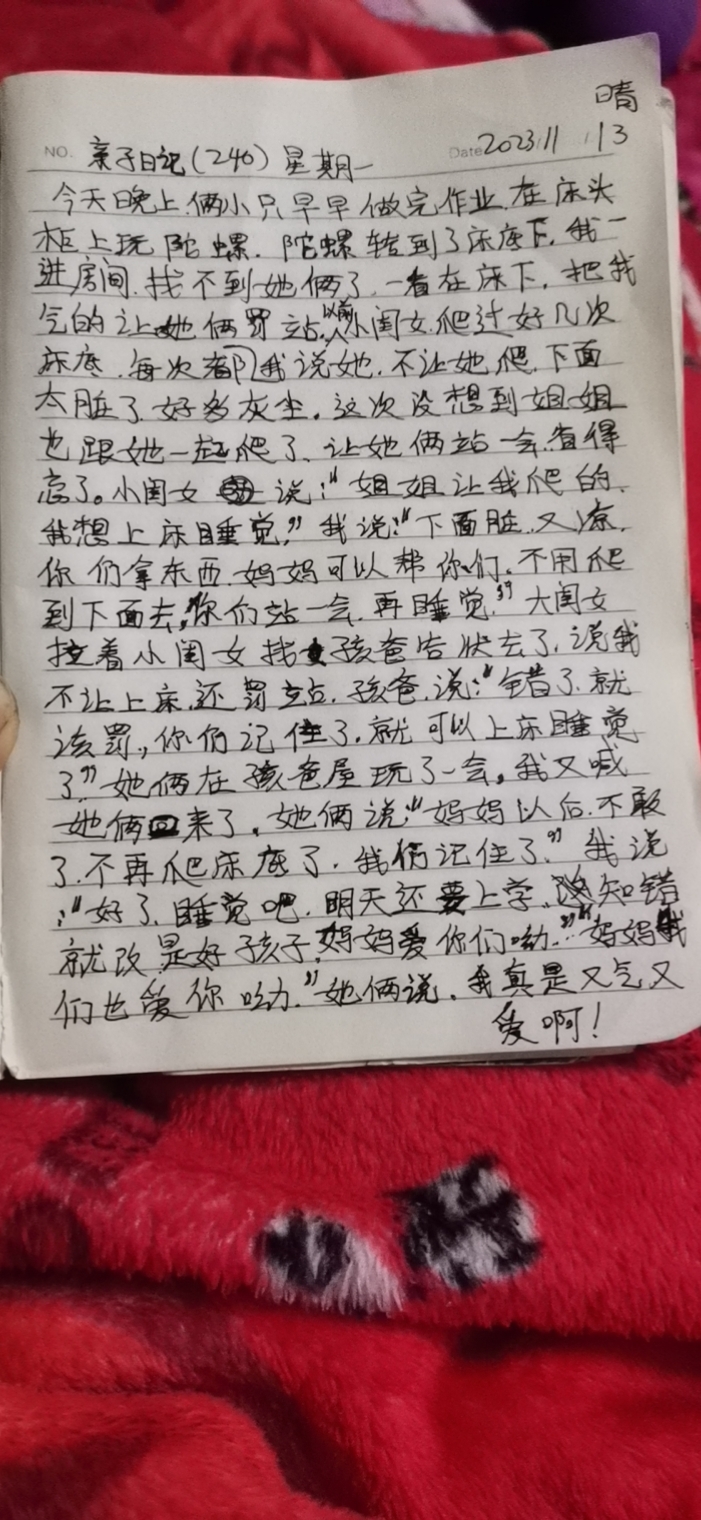 晴
NO. 亲子日记(246)星期一 Date 2023/11/13
今天晚上.俩小只早早做完作业.在床头
柜上玩陀螺.陀螺转到了床底下.我一
进房间.找不到她俩了.一看在床下.把我
气的让她俩罚站.以前小闺女爬过好几次
床底.每次都我说她.不让她爬.下面
太脏了.好多灰尘.这次没想到姐姐
也跟她一起爬了、让她俩站一会.省得
忘了。小闺女说:“姐姐让我爬的.
我想上床睡觉.”我说:“下面脏.又凉.
你们拿东西.妈妈可以帮你们.不用爬
到下面去.你们站一会.再睡觉.”大闺女
拉着小闺女找孩爸告状去了.说我
不让上床.还罚站.孩爸.说:“错了.就
该罚,你们记住了.就可以上床睡觉
了”她俩在孩爸屋玩了一会。我又喊
她俩回来了.她俩说:“妈妈以后.不敢
了.不再爬床底了.我们记住了.”我说
:“好了.睡觉吧.明天还要上学.知错
就改.是好孩子.妈妈爱你们呦.”“妈妈我
们也爱你呦.”她俩说.我真是又气又
爱啊!